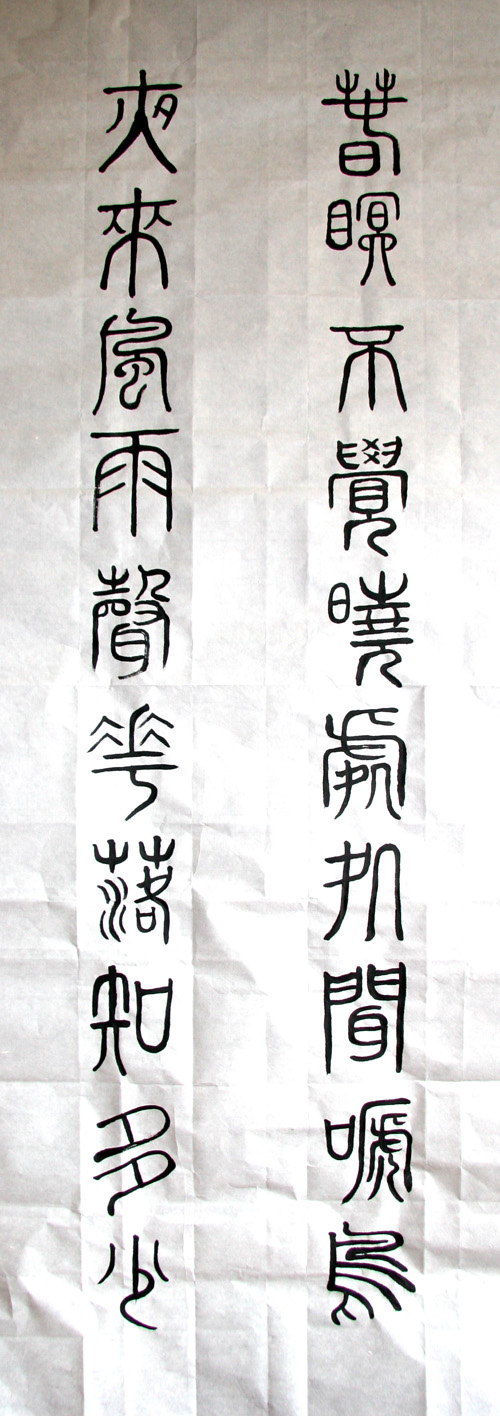 春瞑不覺曉處処聞嗁鳥
夜來風雨聲華落知多少